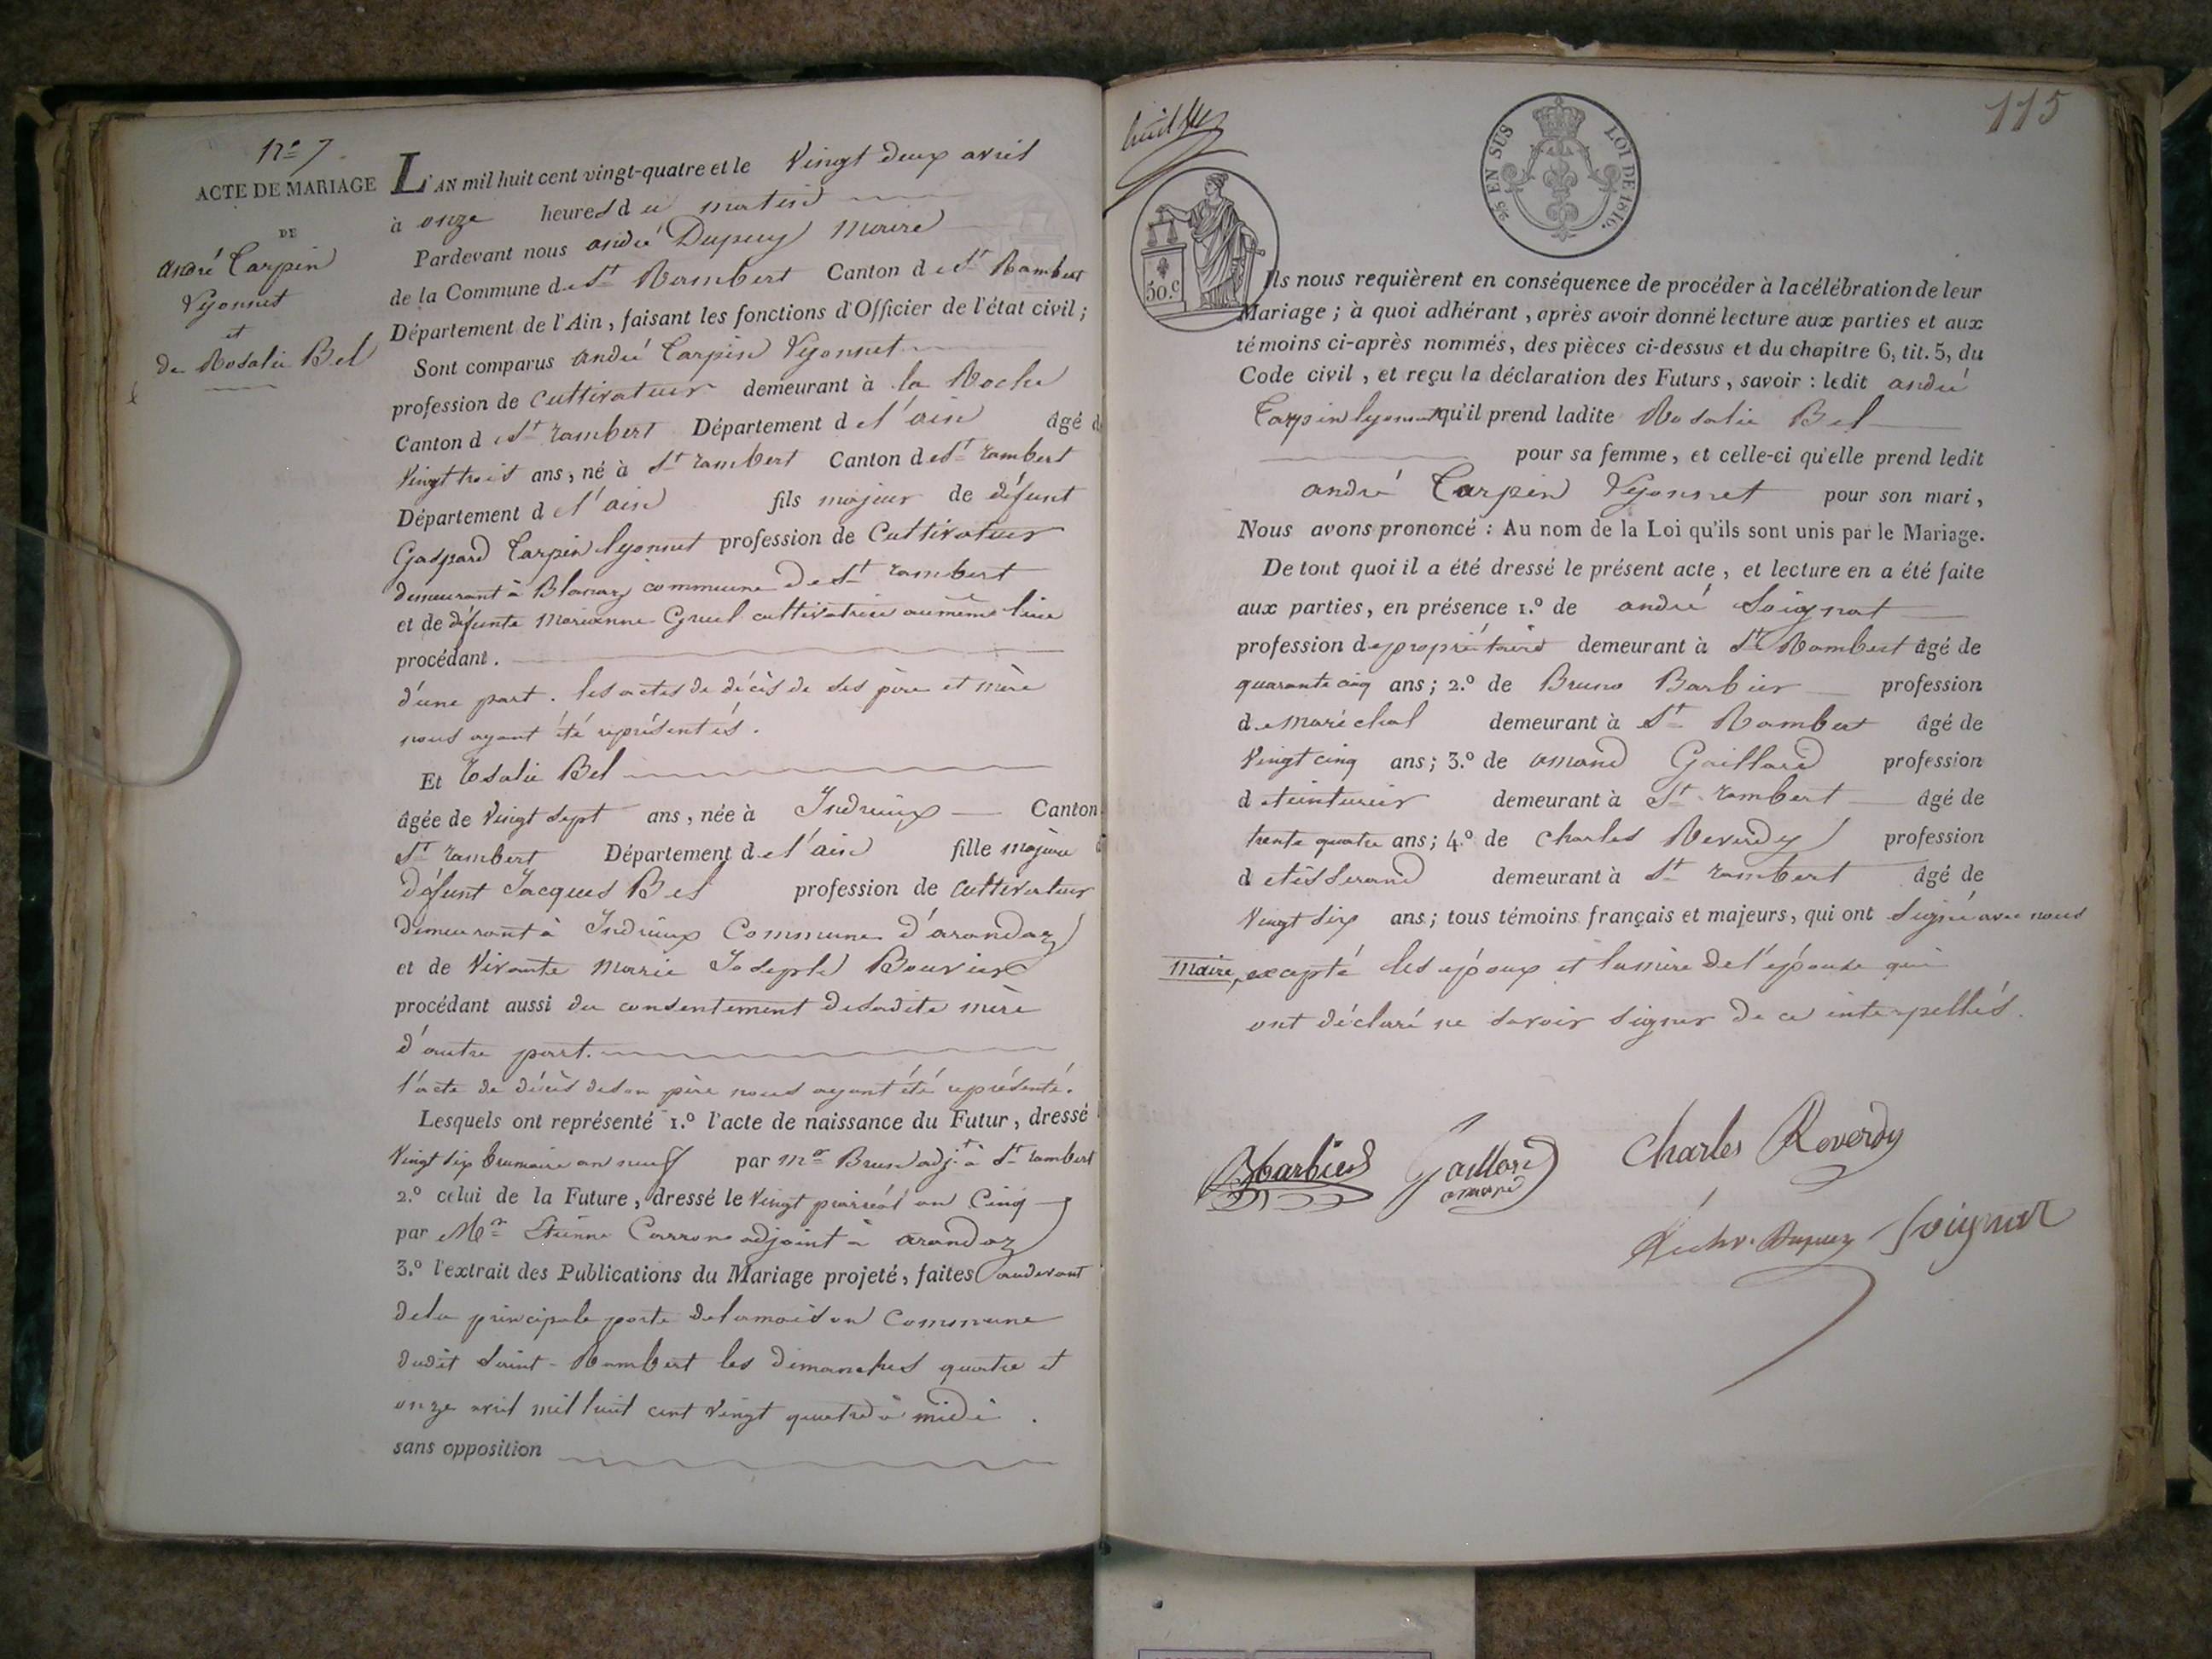 N.o 7.
ACTE DE MARIAGE
DE
André Carpin
Lyonnet
et
de Rosalie Bel
L'AN mil huit cent vingt-quatre et le Vingt deux avril
à onze heures du matin
Pardevant nous andré Dupuy Maire
de la Commune de St Rambert Canton de St Rambert
Département de l'Ain, faisant les fonctions d'Officier de l'état civil;
Sont comparus andré Carpin Lyonnet
profession de Cultivateur demeurant à la Roche
Canton de St rambert Département de l'ain âgé d
Vingt trois ans, né à St rambert Canton de St rambert
Département de l'ain fils majeur de défunt
Gaspard Carpin lyonnet profession de Cultivateur
demeurant à Blanaz commune de St rambert
et de défunte Marianne Gruel cultivatrice au même lieu
procédant.
d'une part. les actes de décès de ses père et mère
nous ayant été représentés.
Et Rosalie Bel
âgée de Vingt sept ans, née à Indrieux Canton
St rambert Département de l'ain fille majeure d
défunt Jacques Bel profession de Cultivateur
demeurant à Indrieux Commune d'arandaz
et de Vivante Marie Josephe Bouvier
procédant aussi du consentement de sadite mère
d'autre part.
l'acte de décès de son père nous ayant été représenté.
Lesquels ont représenté 1.o l'acte de naissance du Futur, dressé
Vingt six brumaire an neuf par Mr Brun adj.t à St rambert
2.o celui de la Future, dressé le Vingt prairéal an Cinq
par Mr Etienne Carron adjoint à arandaz
3.o l'extrait des Publications du Mariage projeté, faites audevant
de la principale porte de la maison Commune
dudit Saint-Rambert les dimanches quatre et
onze avril mil huit cent vingt quatre à midi.
sans opposition
115
25 EN SUS
LOI DE 1816.
50.c
Ils nous requièrent en conséquence de procéder à la célébration de leur
Mariage; à quoi adhérant, après avoir donné lecture aux parties et aux
témoins ci-après nommés, des pièces ci-dessus et du chapitre 6, tit. 5, du
Code civil, et reçu la déclaration des Futurs, savoir: ledit andré
Carpin lyonnet qu'il prend ladite Rosalie Bel
pour sa femme, et celle-ci qu'elle prend ledit
andré Carpin Lyonnet pour son mari,
Nous avons prononcé: Au nom de la Loi qu'ils sont unis par le Mariage.
De tout quoi il a été dressé le présent acte, et lecture en a été faite
aux parties, en présence 1.o de andré Soignat
profession de propriétaire demeurant à St Rambert âgé de
quarante cinq ans; 2.o de Bruno Barbier profession
de maréchal demeurant à St Rambert âgé de
Vingt cinq ans; 3.o de amand Gaillard profession
de teinturier demeurant à St rambert âgé de
trente quatre ans; 4.o de Charles Reverdy profession
de tisserand demeurant à St rambert âgé de
Vingt six ans; tous témoins français et majeurs, qui ont signé avec nous
Maire, excepté les époux et la mère de l'épouse qui
ont déclaré ne savoir signer de ce interpellés.
Barbier Gaillard Charles Reverdy
amand
Dupuy Soignat